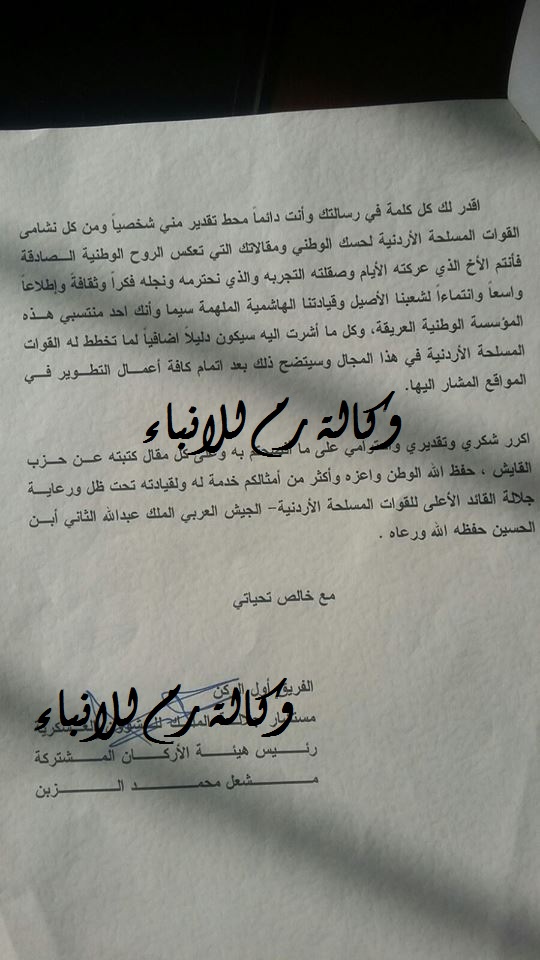 اقدر لك كل كلمة في رسالتك وأنت دائماً محط تقدير مني شخصياً ومن كل نشامى
القوات المسلحة الأردنية لحسك الوطني ومقالاتك التي تعكس الروح الوطنية الـــصادقة
فأنتم الأخ الذي عركته الأيام وصقلته التجربه والذي نحترمه ونجله فكراً وثقافةً وإطلاعاً
واسعاً وانتماءاً لشعبنا الأصيل وقيادتنا الهاشمية الملهمة سيما وأنك احد منتسبي هـــذه
المؤسسة الوطنية العريقة، وكل ما أشرت اليه سيكون دليلاً اضافياً لما تخطط له القوات
المسلحة الأردنية في هذا المجال وسيتضح ذلك بعد اتمام كافة أعمـــال التطــوير فـــي
المواقع المشار اليها.
وكالة رم للانباء
اكرر شكري وتقديري على ما به كل مقال كتبته عـــن حـــزب
القايش ، حفظ الله الوطن واعزه وأكثر من أمثالكم خدمة له ولقيادته تحت ظل ورعايـــة
جلالة القائد الأعلى للقوات المسلحة الأردنية– الجيش العربي الملك عبدالله الثاني أبـــن
الحسين حفظه الله ورعاه .
مع خالص تحياتي
الفريق أول الركن
وكالة رم للانباء
مستشار العسكرية
رئـــيس هيئـــة الأركـــان المـــشتركة
مـــشعل محمـــد الـــزبن